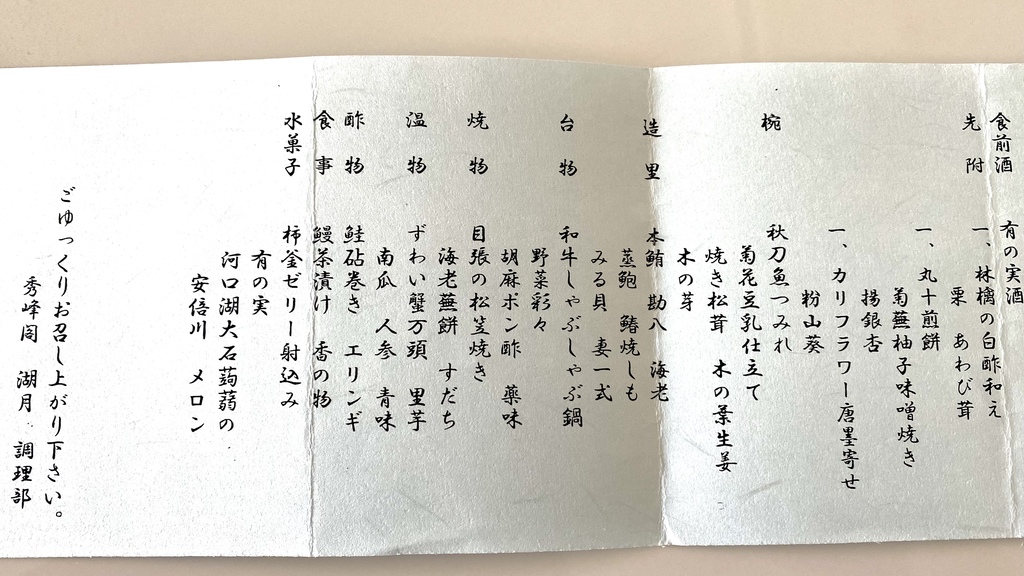 食前酒 有の実酒
先附 一、林檎の白酢和え
栗 あわび茸
一、丸十煎餅
菊蕪柚子味噌焼き
揚銀杏
一、カリフラワー唐墨寄せ
粉山葵
椀 秋刀魚つみれ
菊花豆乳仕立て
焼き松茸 木の葉生姜
木の芽
造里 本鮪 勘八 海老
蒸鮑 鰆焼しも
みる貝 妻一式
台物 和牛しゃぶしゃぶ鍋
野菜彩々
胡麻ポン酢 薬味
焼物 目張の松笠焼き
海老蕪餅 すだち
温物 ずわい蟹万頭 里芋
南瓜 人参 青味
酢物 鮭砧巻き エリンギ
食事 鰻茶漬け 香の物
水菓子 柿釜ゼリー射込み
有の実
河口湖大石蒟蒻の
安倍川 メロン
ごゆっくりお召し上がり下さい。
秀峰閣 湖月 調理部